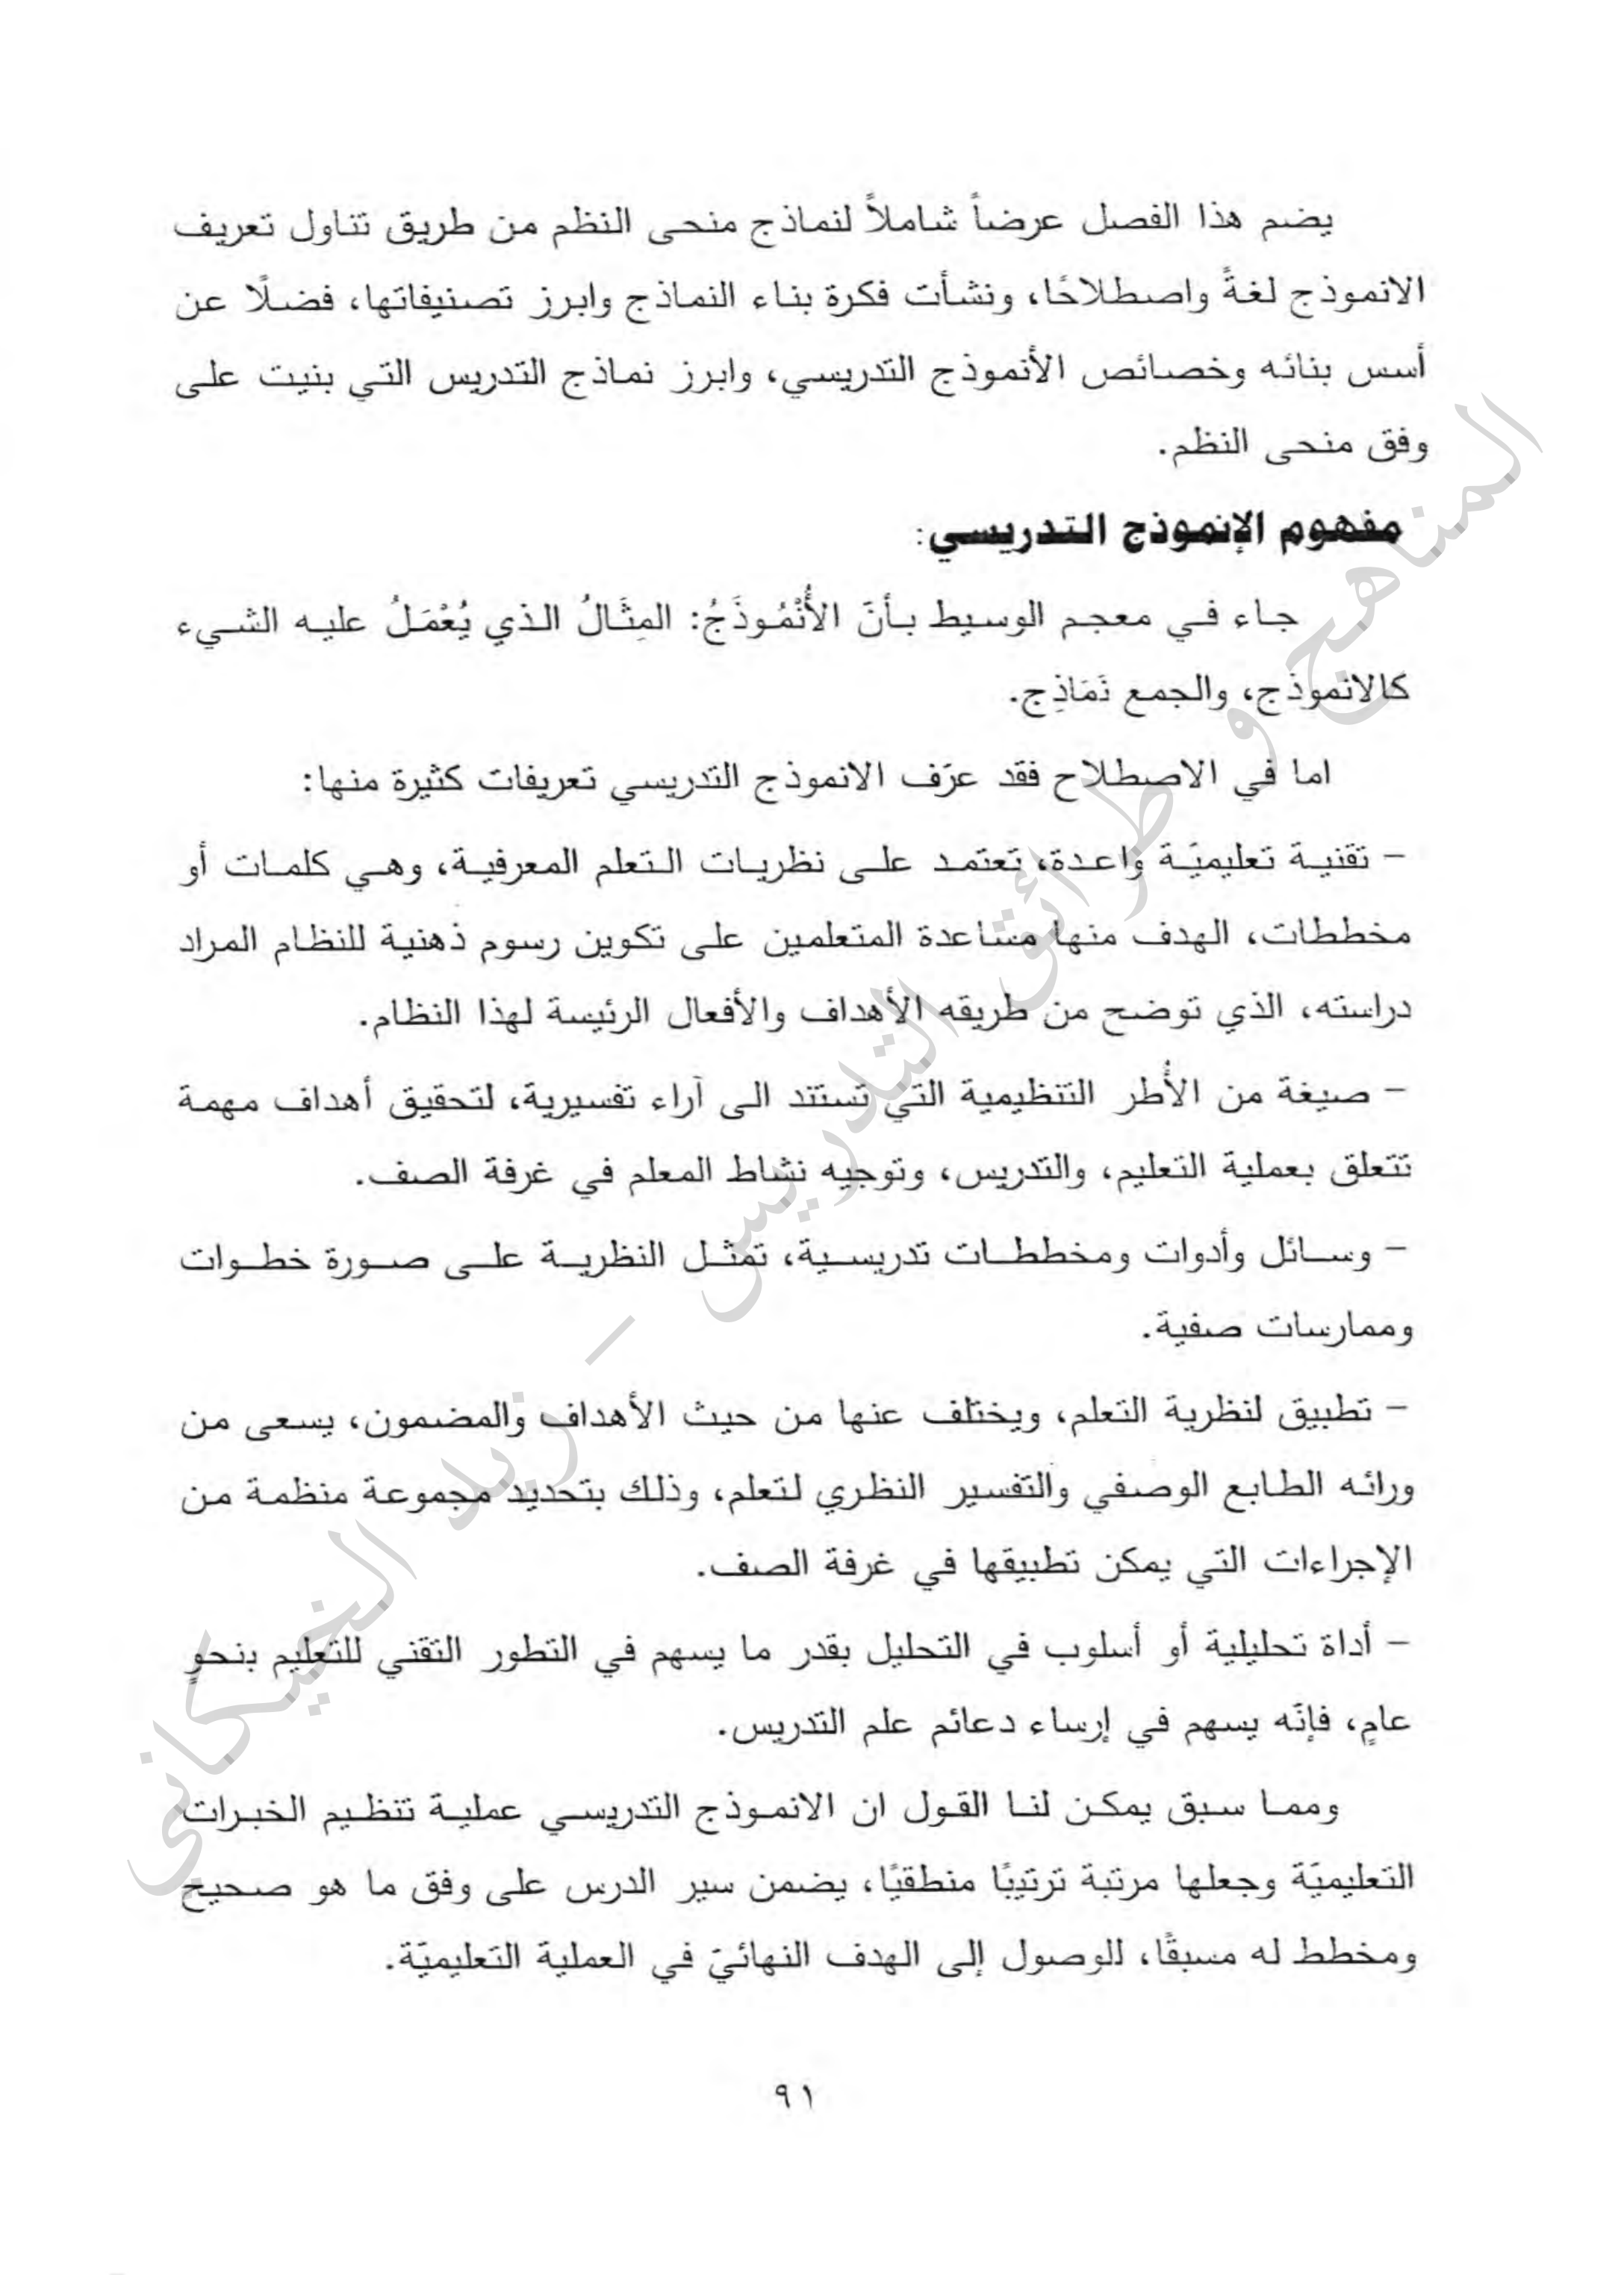 يضم هذا الفصل عرضاً شاملاً لنماذج منحى النظم من طريق تناول تعريف
الانموذج لغةً واصطلاحًا، ونشأت فكرة بناء النماذج وابرز تصنيفاتها، فضلًا عن
أسس بنائه وخصائص الأنموذج التدريسي، وابرز نماذج التدريس التي بنيت على
وفق منحى النظم.
مفهوم الإنموذج التدريسي:
جاء في معجم الوسيط بأنَ الأُنْمُوذَجُ: المِثَالُ الذي يُعْمَلُ عليه الشيء
كالانموذَج، والجمع نَمَاذِج.
اما في الاصطلاح فقد عرّف الانموذج التدريسي تعريفات كثيرة منها:
– تقنية تعليميّة واعدة، تعتمد على نظريات التعلم المعرفية، وهي كلمات أو
مخططات، الهدف منها مساعدة المتعلمين على تكوين رسوم ذهنية للنظام المراد
دراسته، الذي توضح من طريقه الأهداف والأفعال الرئيسة لهذا النظام.
– صيغة من الأُطر التنظيمية التي تستند الى آراء تفسيرية، لتحقيق أهداف مهمة
تتعلق بعملية التعليم، والتدريس، وتوجيه نشاط المعلم في غرفة الصف.
– وسائل وأدوات ومخططات تدريسية، تمثّل النظرية على صورة خطوات
وممارسات صفية.
– تطبيق لنظرية التعلم، ويختلف عنها من حيث الأهداف والمضمون، يسعى من
ورائه الطابع الوصفي والتفسير النظري لتعلم، وذلك بتحديد مجموعة منظمة من
الإجراءات التي يمكن تطبيقها في غرفة الصف.
– أداة تحليلية أو أسلوب في التحليل بقدر ما يسهم في التطور التقني للتعليم بنحوٍ
عامٍ، فإنّه يسهم في إرساء دعائم علم التدريس.
ومما سبق يمكن لنا القول ان الانموذج التدريسي عملية تنظيم الخبرات
التعليميّة وجعلها مرتبة ترتيبًا منطقيًا، يضمن سير الدرس على وفق ما هو صحيح
ومخطط له مسبقًا، للوصول إلى الهدف النهائيّ في العملية التعليميّة.
٩١
المناهج و طرائق التدريس – زيد الخيكاني